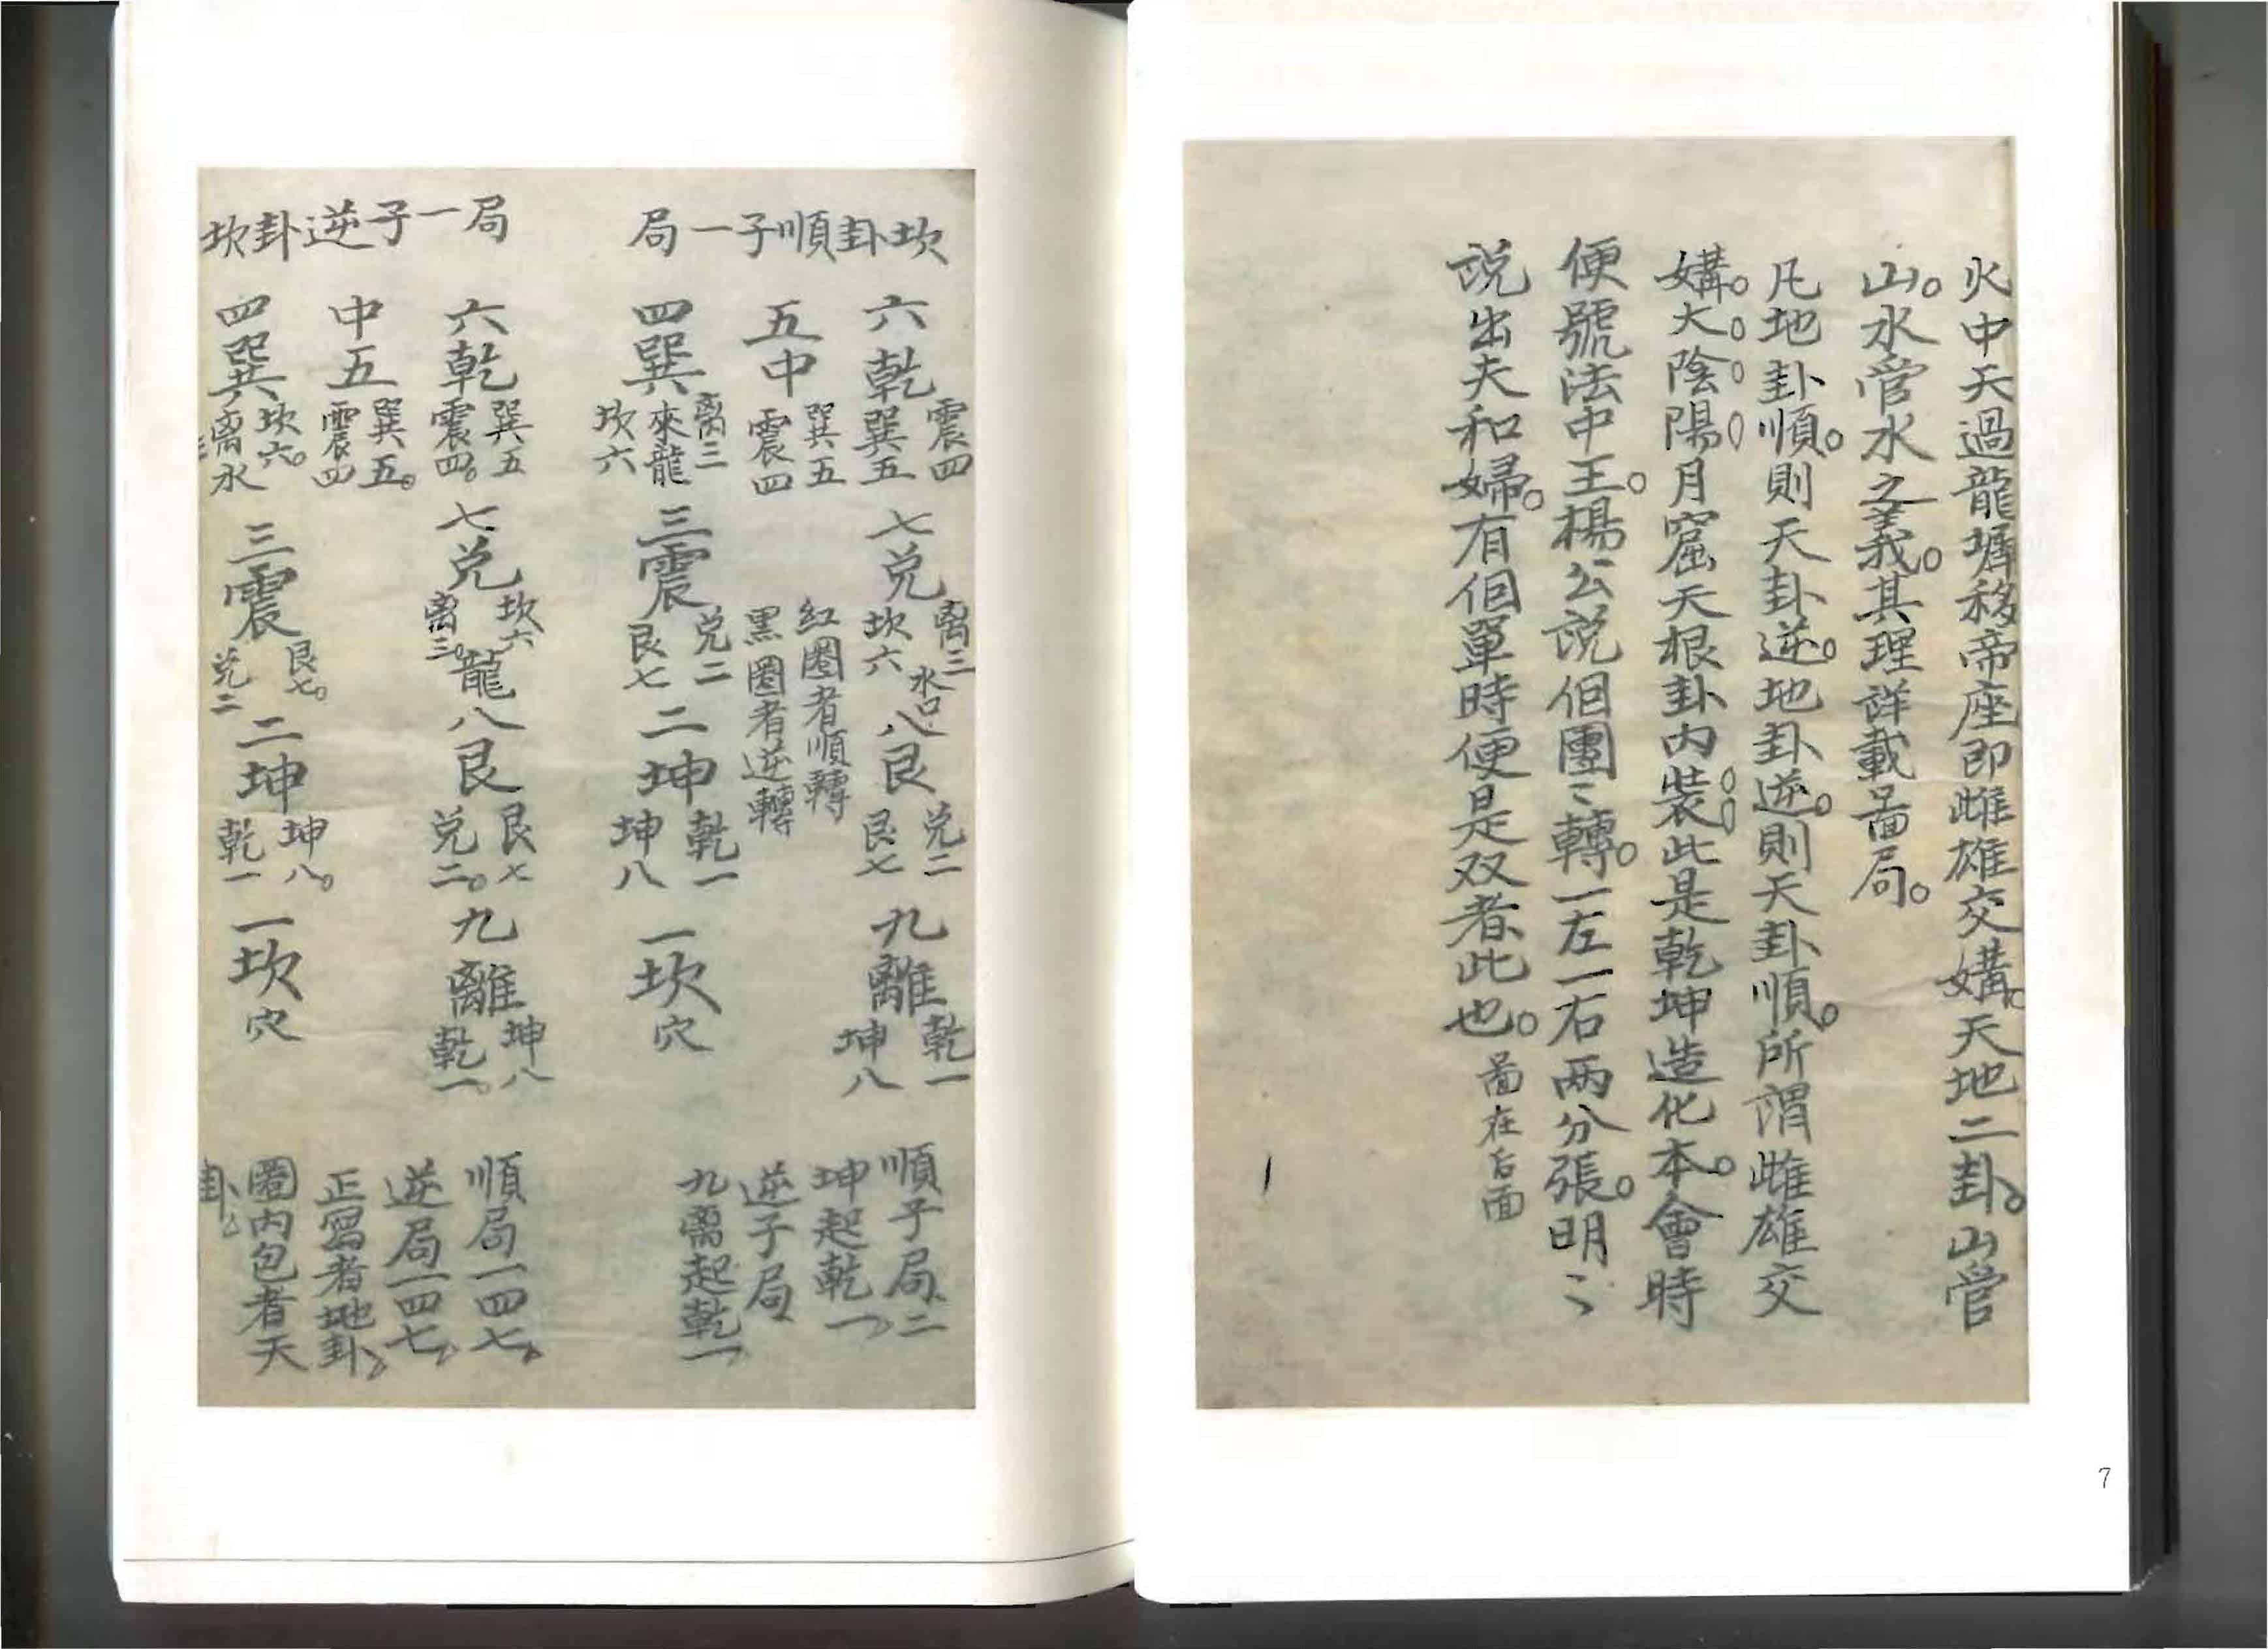 火中天過龍墀移帝座即雌雄交媾。天地二卦。山管
山。水管水之義。其理詳載啚局。
凡地卦順。則天卦逆。地卦逆。則天卦順。所謂雌雄交
媾。大陰陽月窟天根卦內裝此是乾坤造化本。會時
便號法中王。楊公説個團〻轉。一左一右兩分張。明〻
説出夫和婦。有個單時便是双者此也。啚在后面
7
坎卦順子一局
六乾 震四 巽五
七兌 离三 坎六 水口
八艮 兌二 艮七
九離 乾一 坤八
五中 巽五 震四
紅圈者順轉
黑圈者逆轉
四巽 离三 來龍 坎六
三震 兌二 艮七
二坤 乾一 坤八
一坎穴
順子局二
坤起乾一
逆子局
九离起乾一
坎卦逆子一局
六乾 巽五 震四。
七兌 坎六 离三。龍
八艮 艮七 兌二。
九離 坤八 乾一
中五 巽五。震四
四巽 坎六。离三水
三震 艮七。兌二
二坤 坤八。乾一
一坎穴
順局一四七
逆局一四七
正寫者地卦
圈內包者天
卦